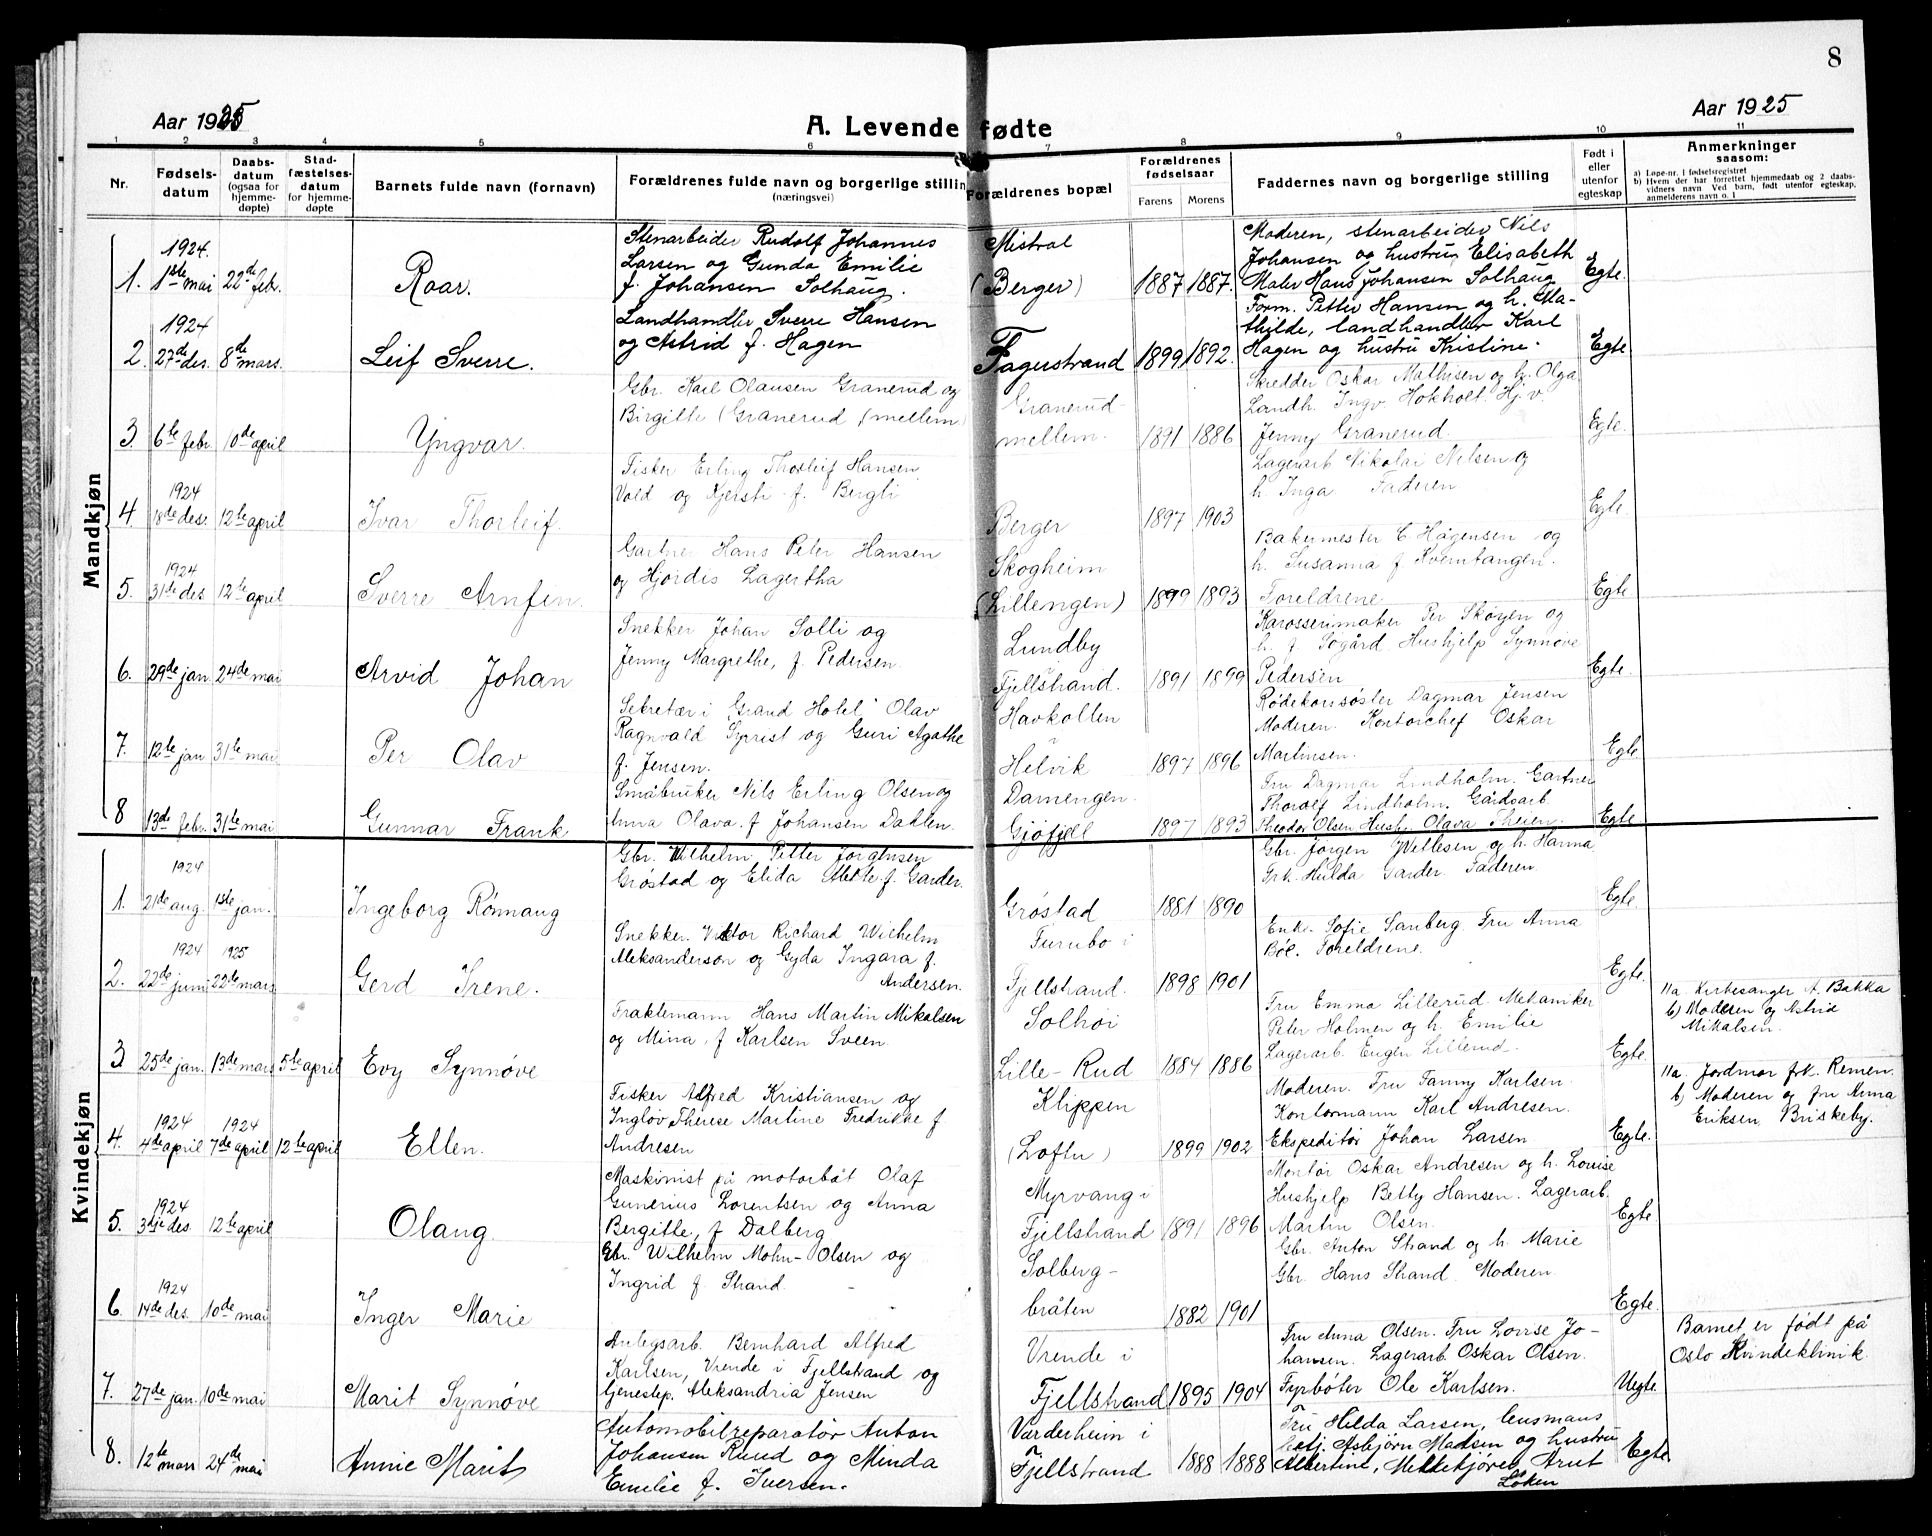 8
Aar 1925
A. Levende fødte
Aar 1925
1 2 3 4 5 6 7 8 9 10 11
Nr.
Fødsels-
datum
Daabs-
datum
(ogsaa for
hjemme-
døpte)
Stad-
fæstelses-
datum
for hjemme-
døpte
Barnets fulde navn (fornavn)
Forældrenes fulde navn og borgerlige stilling
(næringsvei)
Forældrenes bopæl
Forældrenes
fødselsaar
Farens Morens
Faddernes navn og borgerlige stilling
Født i
eller
utenfor
egteskap
Anmerkninger
saasom:
a) Løpe-nr. i fødselsregistret
b) Hvem der har forrettet hjemmedaab og 2 daabs-
vidners navn Ved barn, født utenfor egteskap,
anmelderens navn o. l
Mandkjøn
1924.
1. 1ste mai 22de febr. Roar.
Stenarbeider Rudolf Johannes
Larsen og Gunda Emilie
f. Johansen Solhaug.
Mistral
(Berger) 1887 1887.
Moderen, stenarbeider Nils
Johansen og hustru Elisabeth
Maler Hans Johansen Solhaug
Egte.
1924
2. 27de des. 8de mars. Leif Sverre.
Landhandler Sverre Hansen
og Astrid f. Hagen
Fagerstrand 1899 1892.
Form. Petter Hansen og h. Ma-
thilde, landhandler Karl
Hagen og hustru Kristine.
Egte
3. 6te febr. 10de april Yngvar.
Gbr. Karl Olausen Granerud og
Birgitte (Granerud mellem)
Granerud
mellem. 1891 1886
Skredder Oskar Mathisen og h. Olga
Landh. Ingv Hokholt. Hj.v.
Jenny Granerud.
Egte.
1924
4. 18de des. 12te april Ivar Thorleif.
Fisker Erling Thorleif Hansen
Vold og Kjersti f. Bergli
Berger 1897 1903
Lagerarb Nikolai Nilsen og
h. Inga Faderen
Egte.
1924
5. 31te des 12te april Sverre Arnfin.
Gartner Hans Peter Hansen
og Hjørdis Lagertha
Skogheim
(Lillengen) 1899 1893
Bakermester C Hågensen og
h. Susanna f Kverntangen.
Foreldrene
Egte
6. 29de jan 24de mai Arvid Johan
Snekker Johan Solli og
Jenny Margrethe, f. Pedersen.
Lundby
Fjellstrand. 1891 1899
Karosserimaker Per Skøyen og
h. f. Søgård, Hushjelp Synnøve
Pedersen
Egte.
7. 12te jan 31te mai Per Olav
Sekretær i "Grand Hotel" Olav
Ragnvald Syrrist og Guri Agathe
f. Jensen.
Havkollen
Helvik 1897 1896
Rødekorssøster Dagmar Jensen
Moderen. Kontorchef Oskar
Martinsen.
Egte
8 13de febr. 31te mai Gunnar Frank
Småbruker Nils Erling Olsen og
Anna Olava f. Johansen Dahlen.
Damengen
Gjøfjell 1897 1893
Fru Dagmar Lindholm. Gartner
Thorolf Lindholm. Gårdsarb.
Theodor Olsen Hush. Olava Theien.
Egte
Kvindekjøn
1924
1. 21de aug. 1ste jan. Ingeborg Rønnaug
Gbr. Wilhelm Petter Jørgensen
Grøstad og Elida Mette f. Garder.
Grøstad 1881 1890
Gbr. Jørgen Willesen og h. Hanna
Frk. Hulda Garder. Faderen.
Egte
1924 1925
2. 22de juni 22de mars Gerd Irene.
Snekker Viktor Richard Wilhelm
Aleksanderson og Gyda Ingara f.
Andersen.
Furubo i
Fjellstrand. 1898 1901
Enke. Sofie Sanberg Fru Anna
Bøe. Foreldrene.
Egte
3. 25de jan. 13de mars 5te april Evy Synnøve
Fraktemann Hans Martin Mikalsen
og Mina f Karlsen Sveen.
Solhøi
Lille-Rud 1884 1886
Fru Emma Lillerud Mekaniker
Peter Holmen og h. Emilie
Lagerarb. Eugen Lillerud.
Egte
11a. Kirkesanger A. Bakka
b) Moderen og Astrid
Mikalsen.
1924 1924
4. 4de april 7de april 12te april Ellen.
Fisker Alfred Kristiansen og
Inglov Therese Martine Fredrikke f.
Andresen
Klippen
(Loftu) 1899 1902
Moderen. Fru Fanny Karlsen.
Kontormann Karl Andresen.
Ekspeditør Johan Larsen
Egte.
11a. Jordmor frk. Remen
b) Moderen og fru Anna
Eriksen Briskeby.
1924
5. 3dje des. 12te april Olaug.
Maskinist på motorbåt Olaf
Gunerius Lorentsen og Anna
Bergitte, f Dalberg
Myrvang i
Fjellstrand 1891 1896
Montør Oskar Andresen og h. Louise
Hushjelp Betty Hansen. Lagerarb.
Martin Olsen.
Egte
1924
6. 14de des. 10de mai Inger Marie
Gbr. Wilhelm Mohn-Olsen og
Ingrid f. Strand.
Solberg-
bråten 1882 1901
Gbr. Anton Strand og h. Marie
Gbr. Hans Strand. Moderen.
Egte.
7. 27de jan. 10de mai Marit Synnøve
Anlegsarb. Bernhard Alfred
Karlsen, Vrende i Fjellstrand og
tjenestep. Aleksandria Jensen
Vrende i
Fjellstrand 1895 1904
Fru Anna Olsen. Fru Lovise Jo-
hansen. Lagerarb. Oskar Olsen.
Fyrbøter Ole Karlsen.
Uegte
Barnet er født på
Oslo Kvindeklinik.
8. 12te mars 24de mai Annie Marit
Automobilreparatør Anton
Johansen Ruud og Minda
Emilie f. Iversen.
Varderheim i
Fjellstrand 1888 1888
Fru Hilda Larsen,
Asbjørn Madsen og hustru
Albertine, Melkekjører Arnt
Løken
Egte